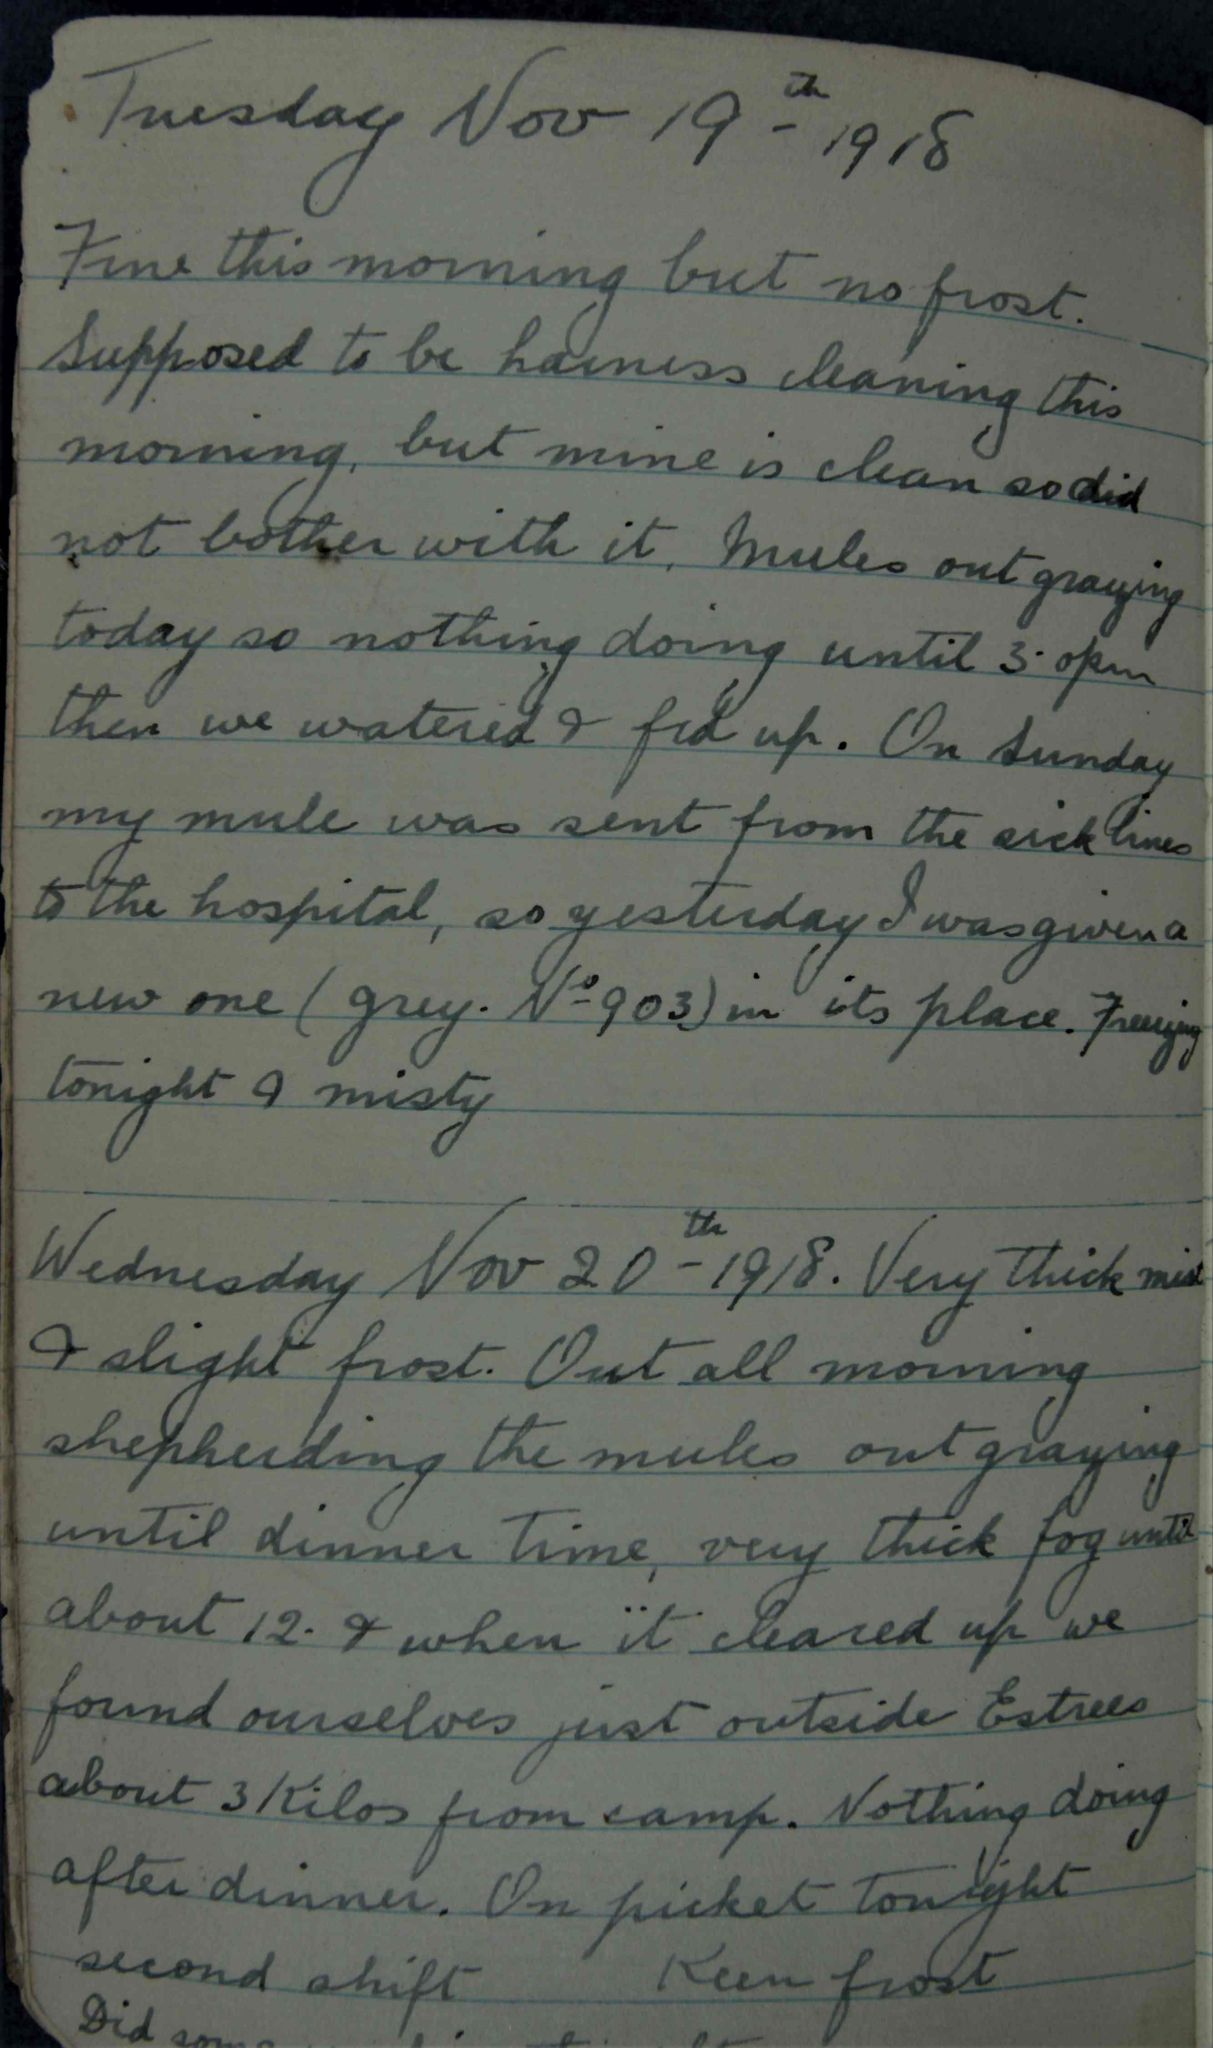 Tuesday Nov 19th 1918
Fine this morning but no frost.
Supposed to be harness cleaning this
morning, but mine is clean so did
not bother with it. Mules out grazing
today so nothing doing until 3.0pm
then we watered & fed up. On Sunday
my mule was sent from the sick lines
to the hospital, so yesterday I was given a
new one (grey. No 903) in its place. Freezing
tonight & misty
Wednesday Nov 20th 1918. Very thick mist
& slight frost. Out all morning
shepherding the mules out grazing
until dinner time, very thick fog until
about 12. & when it cleared up we
found ourselves just outside Estrees
about 3 Kilos from camp. Nothing doing
after dinner. On picket tonight
second shift Keen frost
Did some